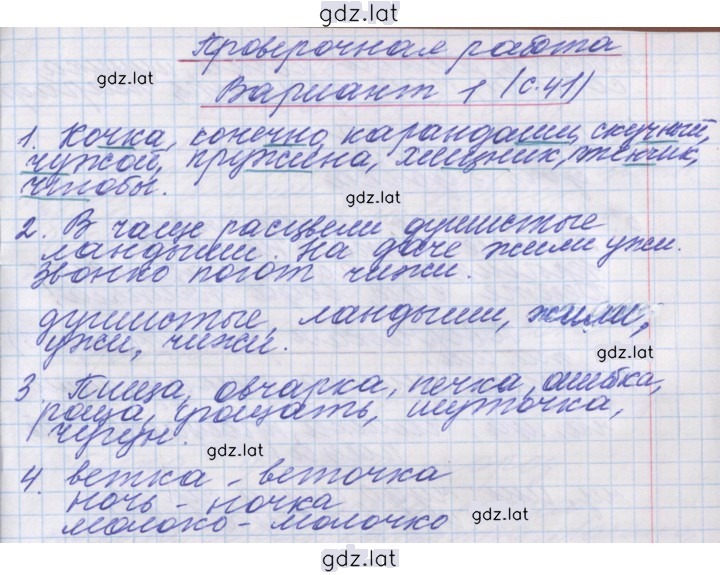 gdz.lat
Проверочная работа
gdz.lat
Вариант 1 (с.41)
1. Кочка, конечно, карандаши, скучный,
чужой, пружина, хищник, жен
чтобы.
gdz.lat
2. В чаще расцвели душистые
ландыши. На даче жили ужи.
Звонко поют чижи.
душистые, ландыши, жили,
ужи, чижи.
gdz.lat
3 Пища, овчарка, печка, ошибка,
роща, угощать, шуточка,
чугун.
gdz.lat
4. ветка - веточка
ночь - ночка
молоко - молочко
gdz.lat
gdz.lat